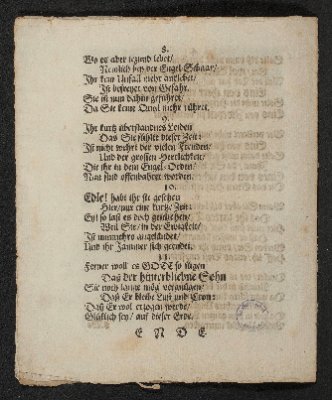 8.
Wo es aber jezund lebet/
Nemlich bey der Engel Schaar/
Ihr kein Unfall mehr anklebet/
Ist befreyet von Gefahr.
Sie ist nun dahin geführet/
Da Sie keine Qual mehr rühret.
9.
Ihr kurtz überstandnes Leiden
Das Sie fühlte dieser Zeit:
Ist nicht wehrt der vielen Freuden/
Und der grossen Herrlichkeit/
Die ihr in dem Engel-Orden/
Nun sind offenbahret worden.
10.
Edle! habt ihr sie gesehen
Hier/nur eine kurtze Zeit:
Ey! so last es doch geschehen/
Weil Sie/in der Ewigkeit/
Ist nunmehro angeländet/
Und ihr Jammer sich geendet.
11.
Ferner woll es GOTT so fügen
Daß der hinterbliebne Sohn
Sie noch lange mög vergnügen/
Daß Er bleibe Lust und Cron:
Daß Er wol erzogen werde/
Glücklich sey/ auf dieser Erde.
E N D E